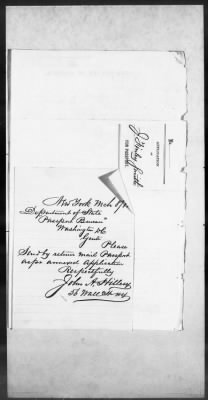 No.
APPLICATION
OF
J Finley Smith
FOR PASSPORT.
New York Mch 8/92
Department of State
"Passport Bureau"
Washington DC
Gents
Please
Send by return mail Passport
as for annexed Application
Respectfully
John A. Hillery
36 Wall St NY